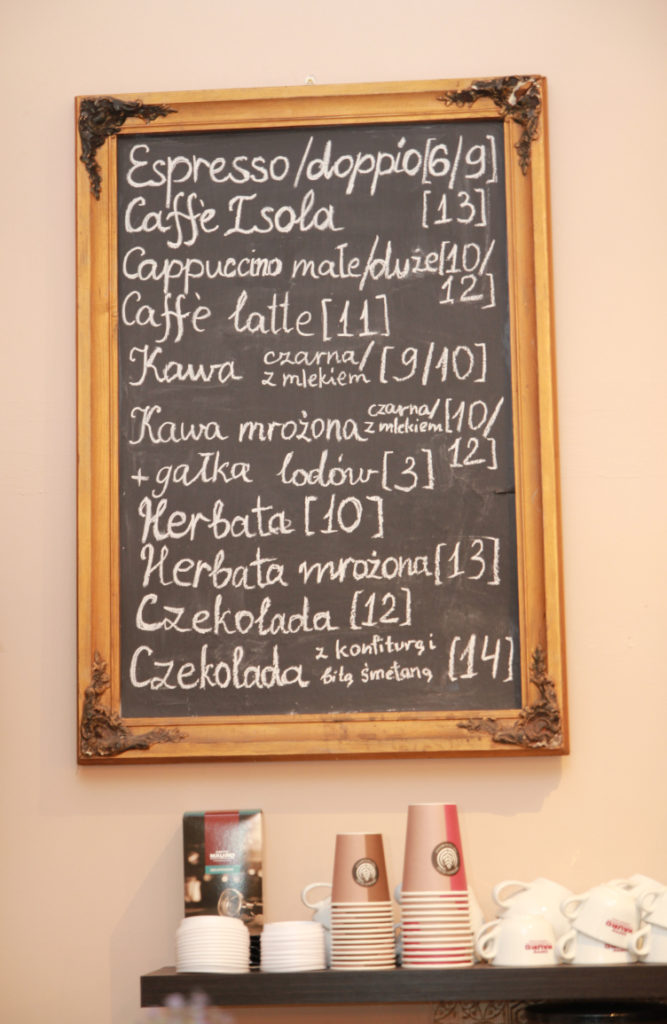 Espresso/doppio[6/9]
Caffè Isola [13]
Cappuccino małe/duże[10/
12]
Caffè latte [11]
Kawa czarna/
z mlekiem [9/10]
Kawa mrożona czarna/
z mlekiem [10/
12]
+ gałka lodów [3]
Herbata [10]
Herbata mrożona [13]
Czekolada [12]
Czekolada z konfiturą i
bitą śmetaną [14]
MAURO